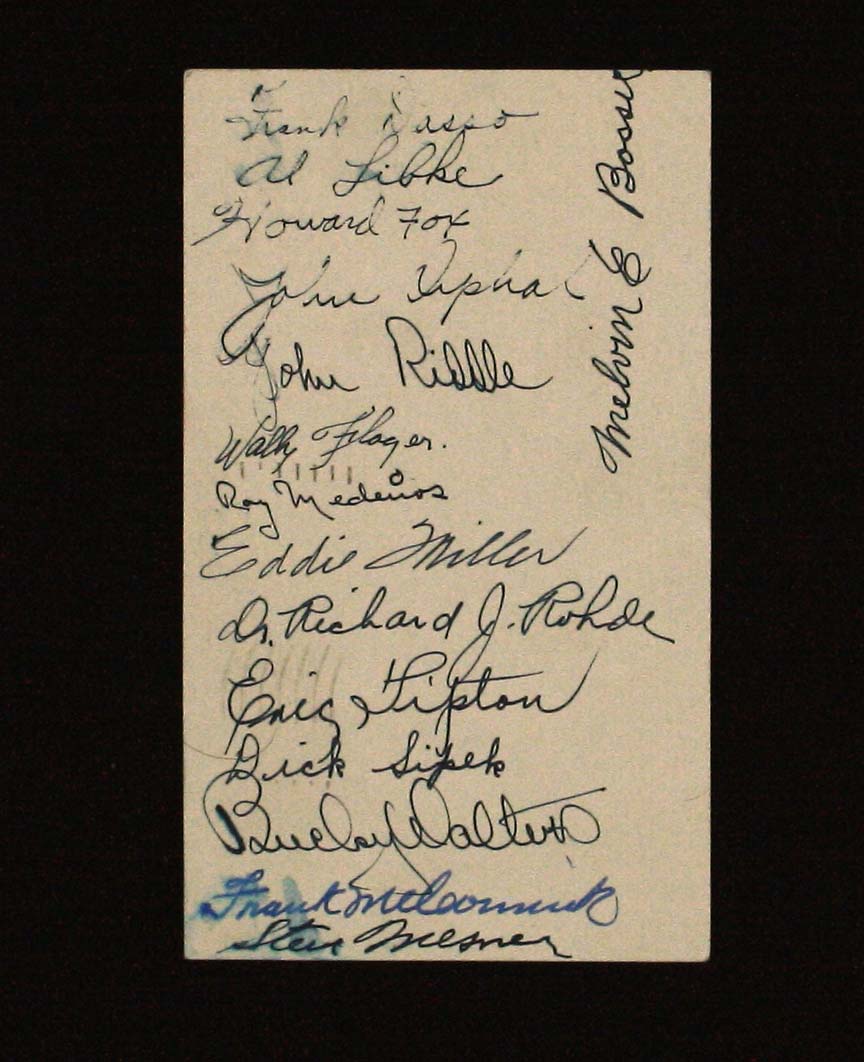 Frank Dasso
Al Libke
Howard Fox
John
John Riddle
Wally Flager.
Ray Medeiros
Eddie Miller
Dr. Richard J. Rohde
Eric Tipton
Dick Sipek
Bucky Walters
Frank McCormick
Steve Mesner
Melvin E Bosser